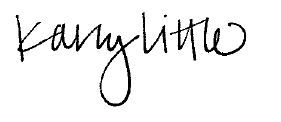 Karry Little